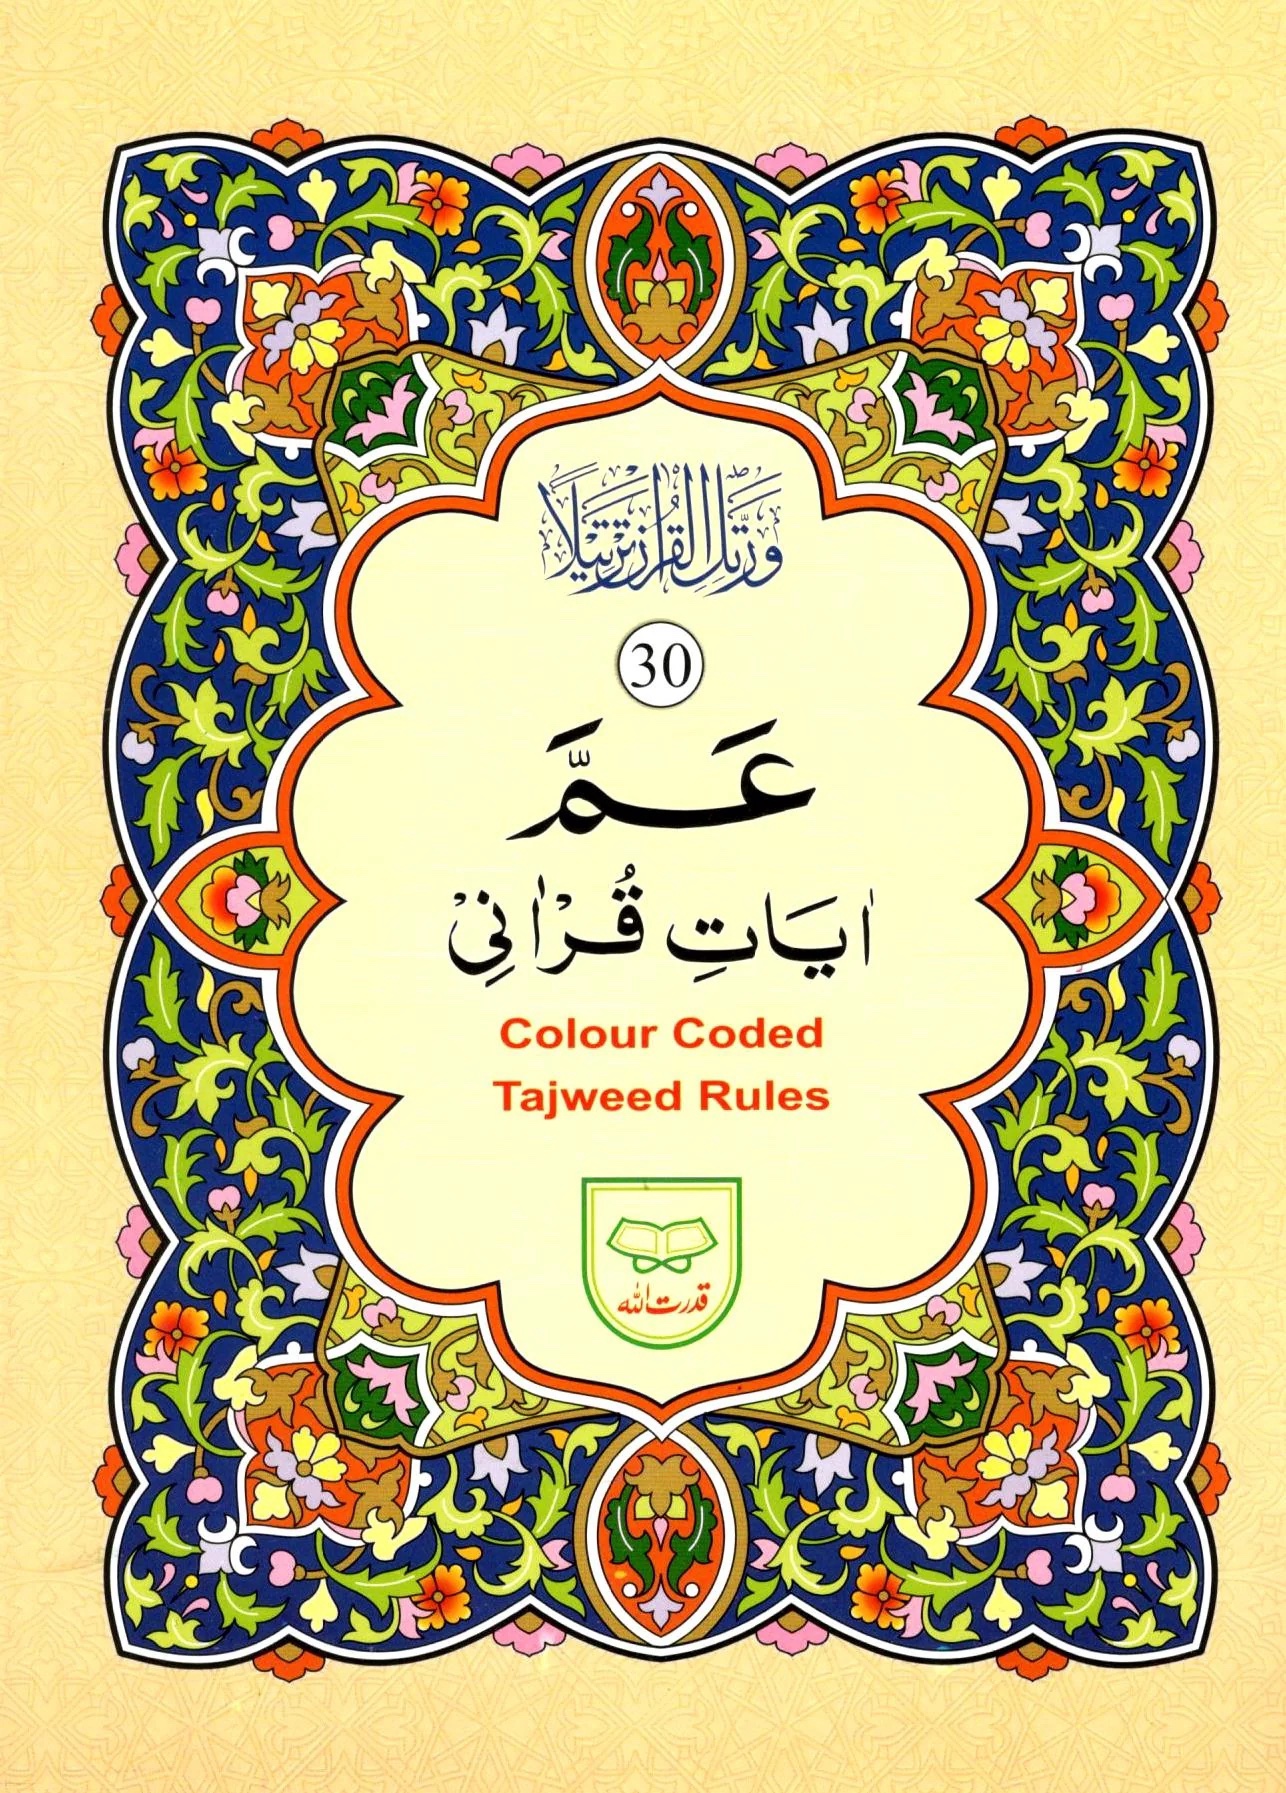 وَرَتِّلِ الْقُرْاٰنَ تَرْتِيْلًا
30
عَمَّ
اٰيَاتِ قُرْاٰنِيْ
Colour Coded
Tajweed Rules
قدرت اللہ